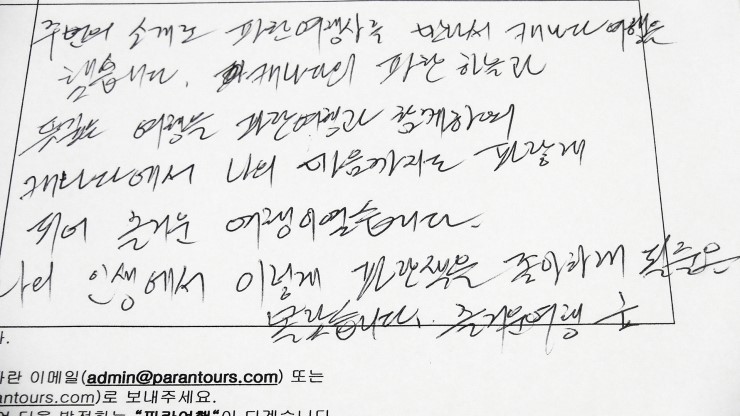 주변의 소개로 파란여행사를 만나서 캐나다 여행을
했습니다. 캐나다의 파란 하늘과
뜻깊은 여행을 파란여행과 함께하여
캐나다에서 나의 마음까지도 파랗게
되어 즐거운 여행이였습니다.
나의 인생에서 이렇게 파란색을 좋아하게 될줄은
몰랐습니다. 즐거운여행
다.
파란 이메일(admin@parantours.com) 또는
antours.com)로 보내주세요.
"파란여행"이 되겠습니다